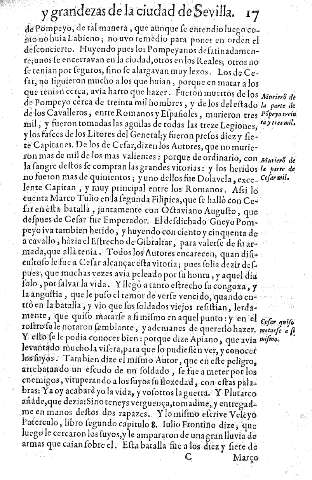 y grandezas de la ciudad de Sevilla. 17
de Pompeyo, de tal manera, que aunque se entendio luego co-
mo no huia Labieno; no uvo remedio para poner en orden el
desconcierto. Huyendo pues los Pompeyanos desatinadamen-
te; unos se encerravan en la ciudad, otros en los Reales, otros no
se tenian por seguros, sino se alargavan muy lexos. Los de Ce-
sar, no siguieron mucho a los que huian, porque en matar a los
que tenian cerca, avia harto que hazer. Fueron muertos de los
de Pompeyo cerca de treinta mil hombres, y de los del estado
de los Cavalleros, entre Romanos y Españoles, murieron tres
mil, y fueron tomadas las aguilas de todas las treze Legiones,
y los fasces de los Litores del General; y fueron presos diez y sie-
te Capitanes. De los de Cesar, dizen los Autores, que no murie-
ron mas de mil de los mas valientes: porque de ordinario, con
la sangre destos se compran las grandes vitorias: y los heridos
no fueron mas de quinientos; y uno dellos fue Dolavela, exce-
lente Capitan, y muy principal entre los Romanos. Assi lo
cuenta Marco Tulio en la segunda Filipica, que se halló con Ce-
sar en esta batalla, juntamente con Octaviano Augusto, que
despues de Cesar fue Emperador. El desdichado Gneyo Pom-
peyo iva tambien herido, y huyendo con ciento y cincuenta de
a cavallo, házia el Estrecho de Gibraltar, para valerse de su ar-
mada, que alli tenia. Todos los Autores encarecen, quan difi-
cultoso le fue a Cesar alcançar esta vitoria; pues solia dezir des-
pues, que muchas vezes avia peleado por su honra, y aquel dia
solo, por salvar la vida. Y llegó a tanto estrecho su congoxa, y
la angustia, que le puso el temor de verse vencido, quando en-
tró en la batalla, y vio que sus soldados viejos resistian,
mente, que quiso matarse a si mismo en aquel punto: y en el
rostro se le notaron semblante, y ademanes de quererlo hazer.
Y esto se le podia conocer bien: porque dize Apiano, que avia
levantado mucho la visera, para que lo pudiessen ver, y conocer
los suyos. Tambien dize el mismo Autor, que en este peligro,
arrebatando un escudo de un soldado, se fue a meter por los
enemigos, vituperando a los suyos su floxedad, con estas pala-
bras: Ya oy acabaré yo la vida, y vosotros la guerra. Y Plutarco
añade, que dezia: Sino teneys verguença, tomadme, y entregad-
me en manos destos dos rapazes. Y lo mismo escrive Veleyo
Paterculo, libro segundo capitulo 8. Iulio Frontino dize, que
luego le cercaron los suyos, y le ampararon de una gran lluvia de
armas que caian sobre el. Esta batalla fue a los diez y siete de
C Março
Murieró de
la parte de
Pōpeyo
mil.
Murieró de
la parte de
Cesar mil.
Cesar quiso
matarse a si
mismo.